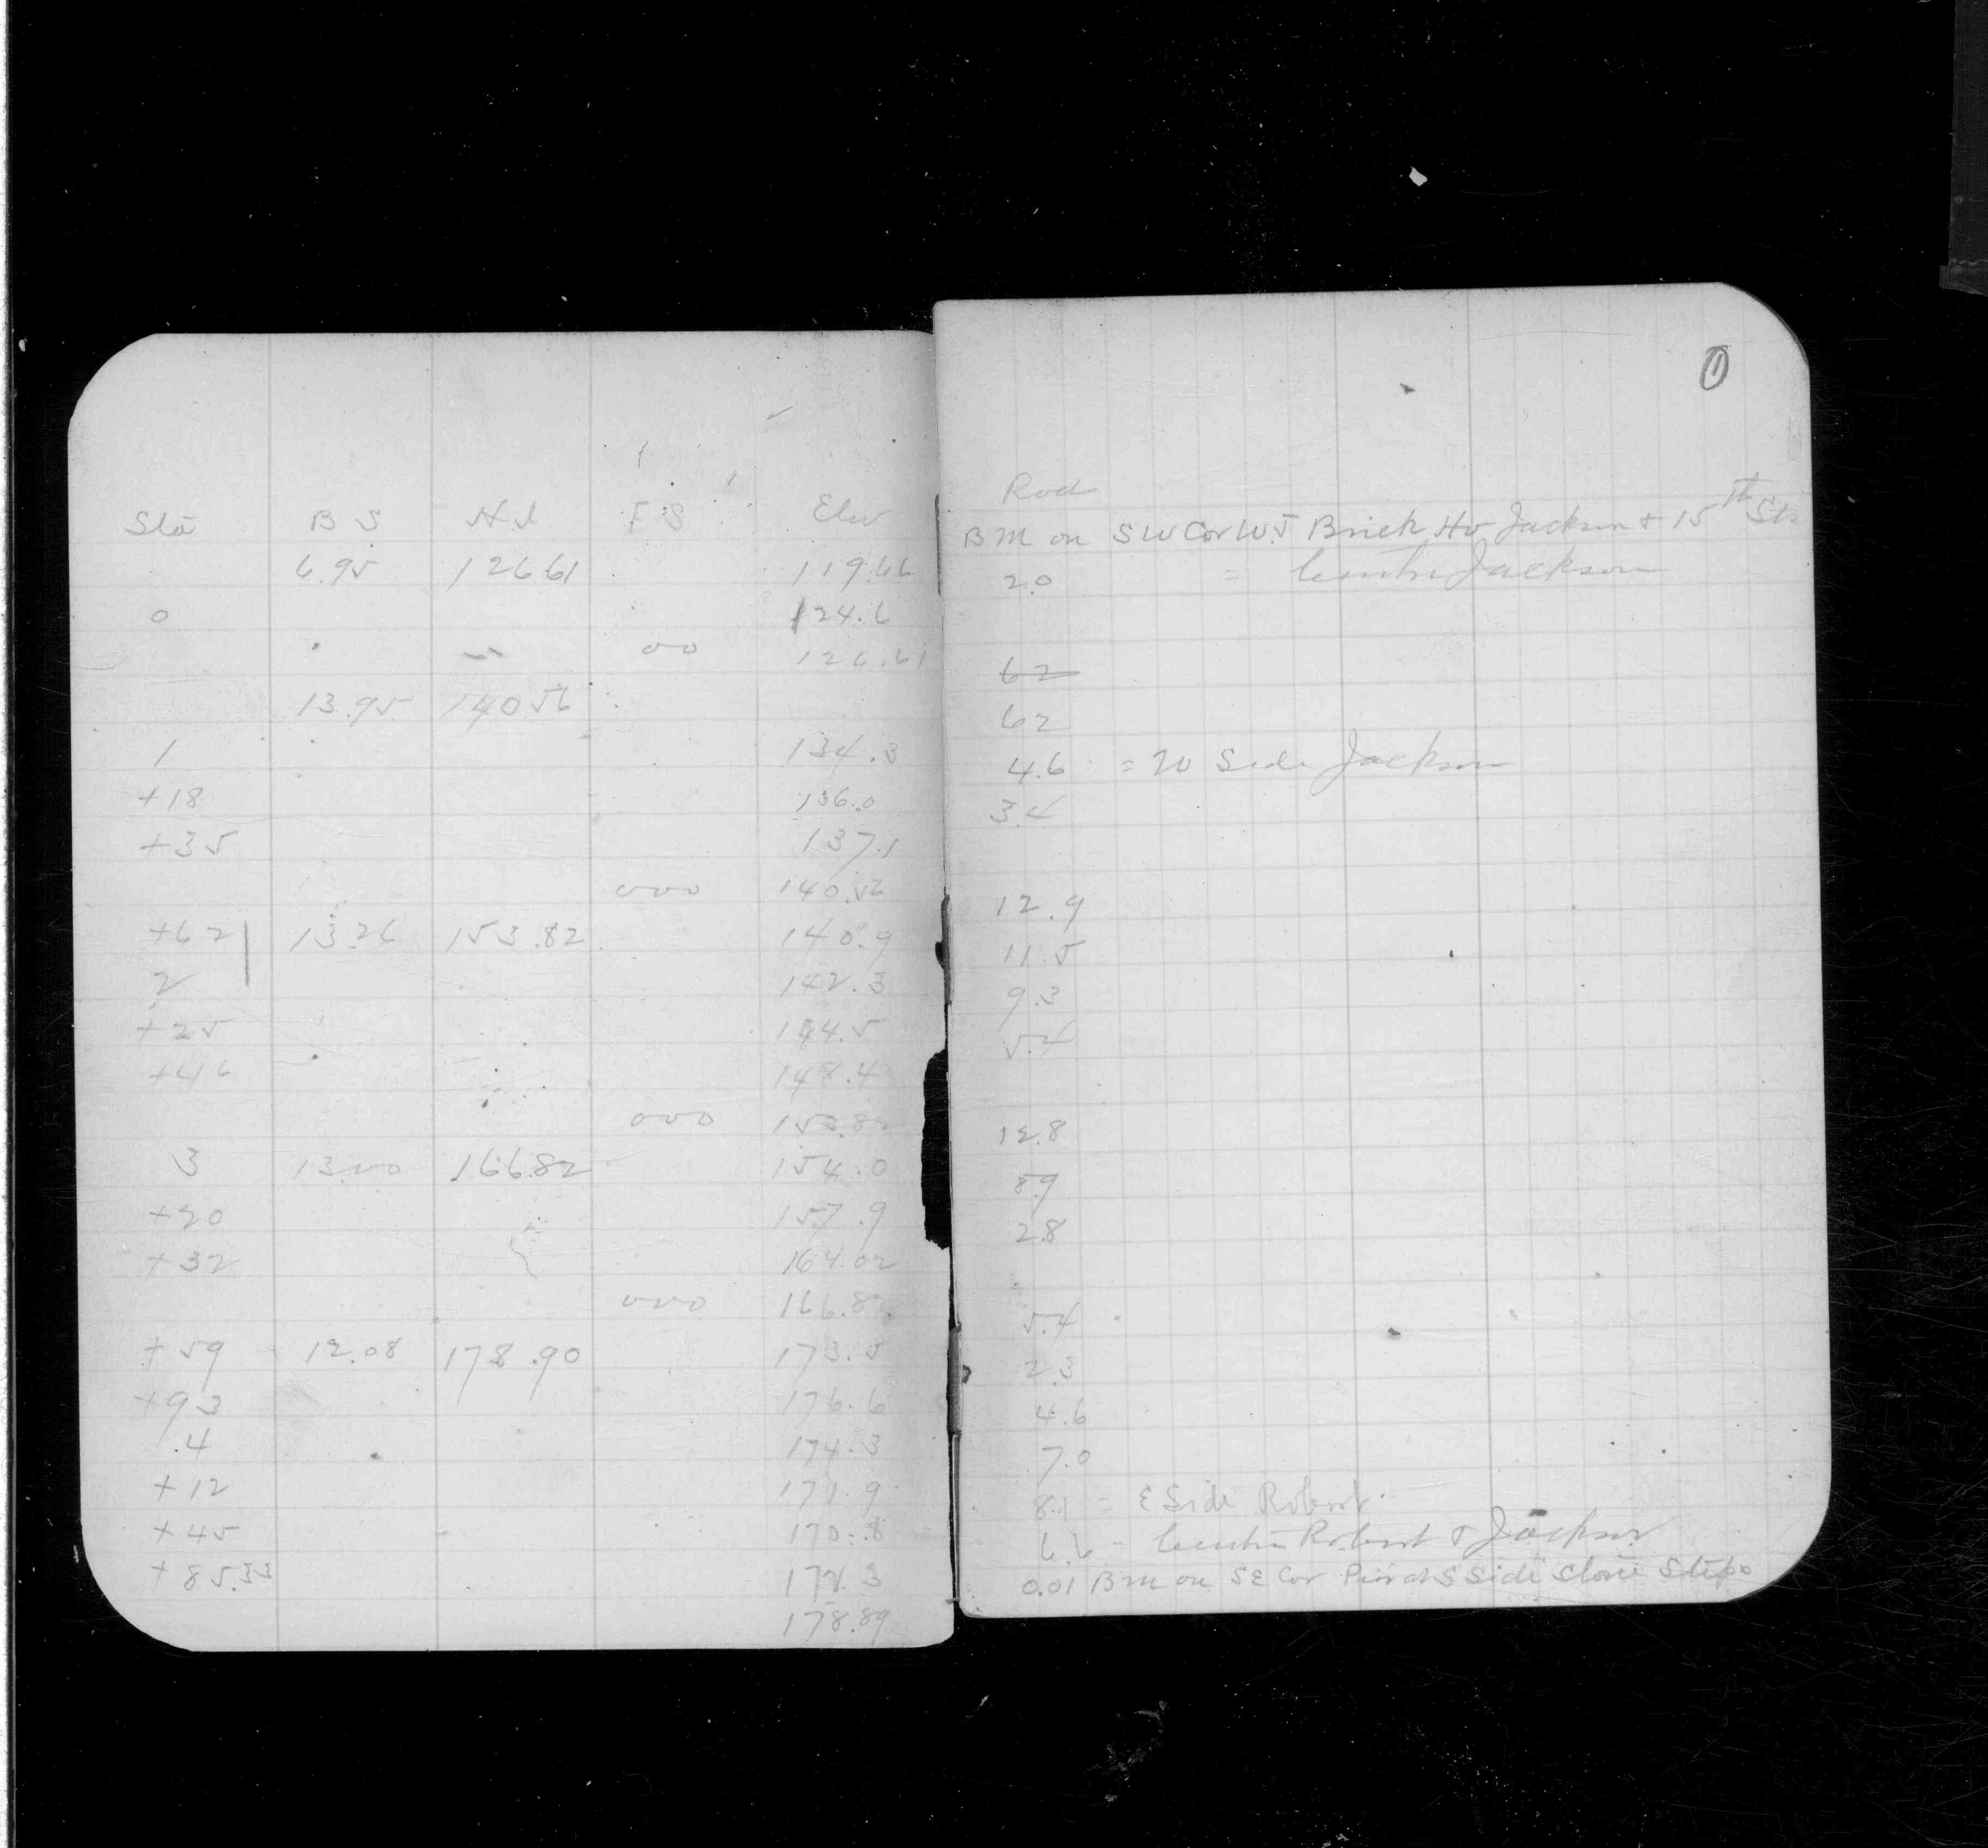 1
Sta B S H I F S Elev
6.95 126.61 119.66
0 124.6
00 126.61
13.95 140.56
1 134.3
+18 136.0
+35 137.1
000 140.56
+62 13.26 153.82 140.9
2 142.3
+25 144.5
+46 148.4
000 153.82
3 13.00 166.82 154.0
+20 157.9
+32 164.02
000 166.82
+59 12.08 178.90 173.5
+93 176.6
.4 174.3
+12 171.9
+45 170.8
+85.33 172.3
178.89
Rod
B M on S W Cor W.S Brick Ho Jackson + 15th Sts
2.0 = Centre Jackson
62
62
4.6 = W Side Jackson
3.4
12.9
11.5
9.3
5.4
12.8
8.9
2.8
5.4
2.3
4.6
7.0
8.1 = E Side Robert
6.6 - Centre Robert & Jackson
0.01 B M on S E Cor S Side Stone Steps